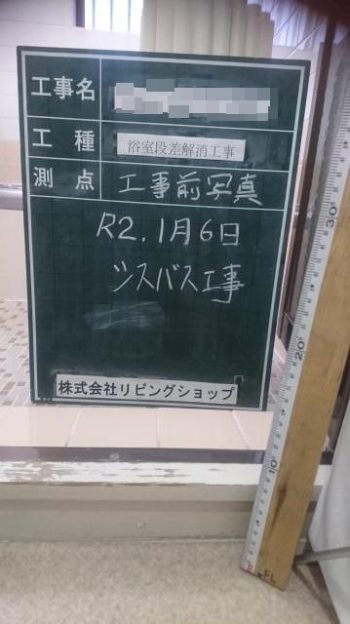 工事名
工種 浴室段差解消工事
測点 工事前写真
R2.1月6日
シスバス工事
株式会社リビングショップ
30
20
10
FL